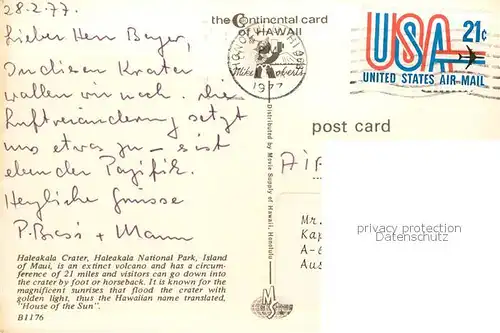 28.2.77.
Lieber Herr Bayer,
In diesen Krater
wollen wir noch. Die
Luftveränderung setzt
uns etwas zu – ist
eben der Pazifik.
Herzliche Grüsse
P. + Mann
Haleakala Crater, Haleakala National Park, Island
of Maui, is an extinct volcano and has a circum-
ference of 21 miles and visitors can go down into
the crater by foot or horseback. It is known for the
magnificent sunrises that flood the crater with
golden light, thus the Hawaiian name translated,
"House of the Sun".
B1176
the Continental card
of HAWAII
Mike Roberts
1977
Distributed by Movie Supply of Hawaii, Honolulu
MS
USA 21¢
UNITED STATES AIR MAIL
post card
AIR
Mr.
Kap
A-6
Aus
privacy protection
Datenschutz